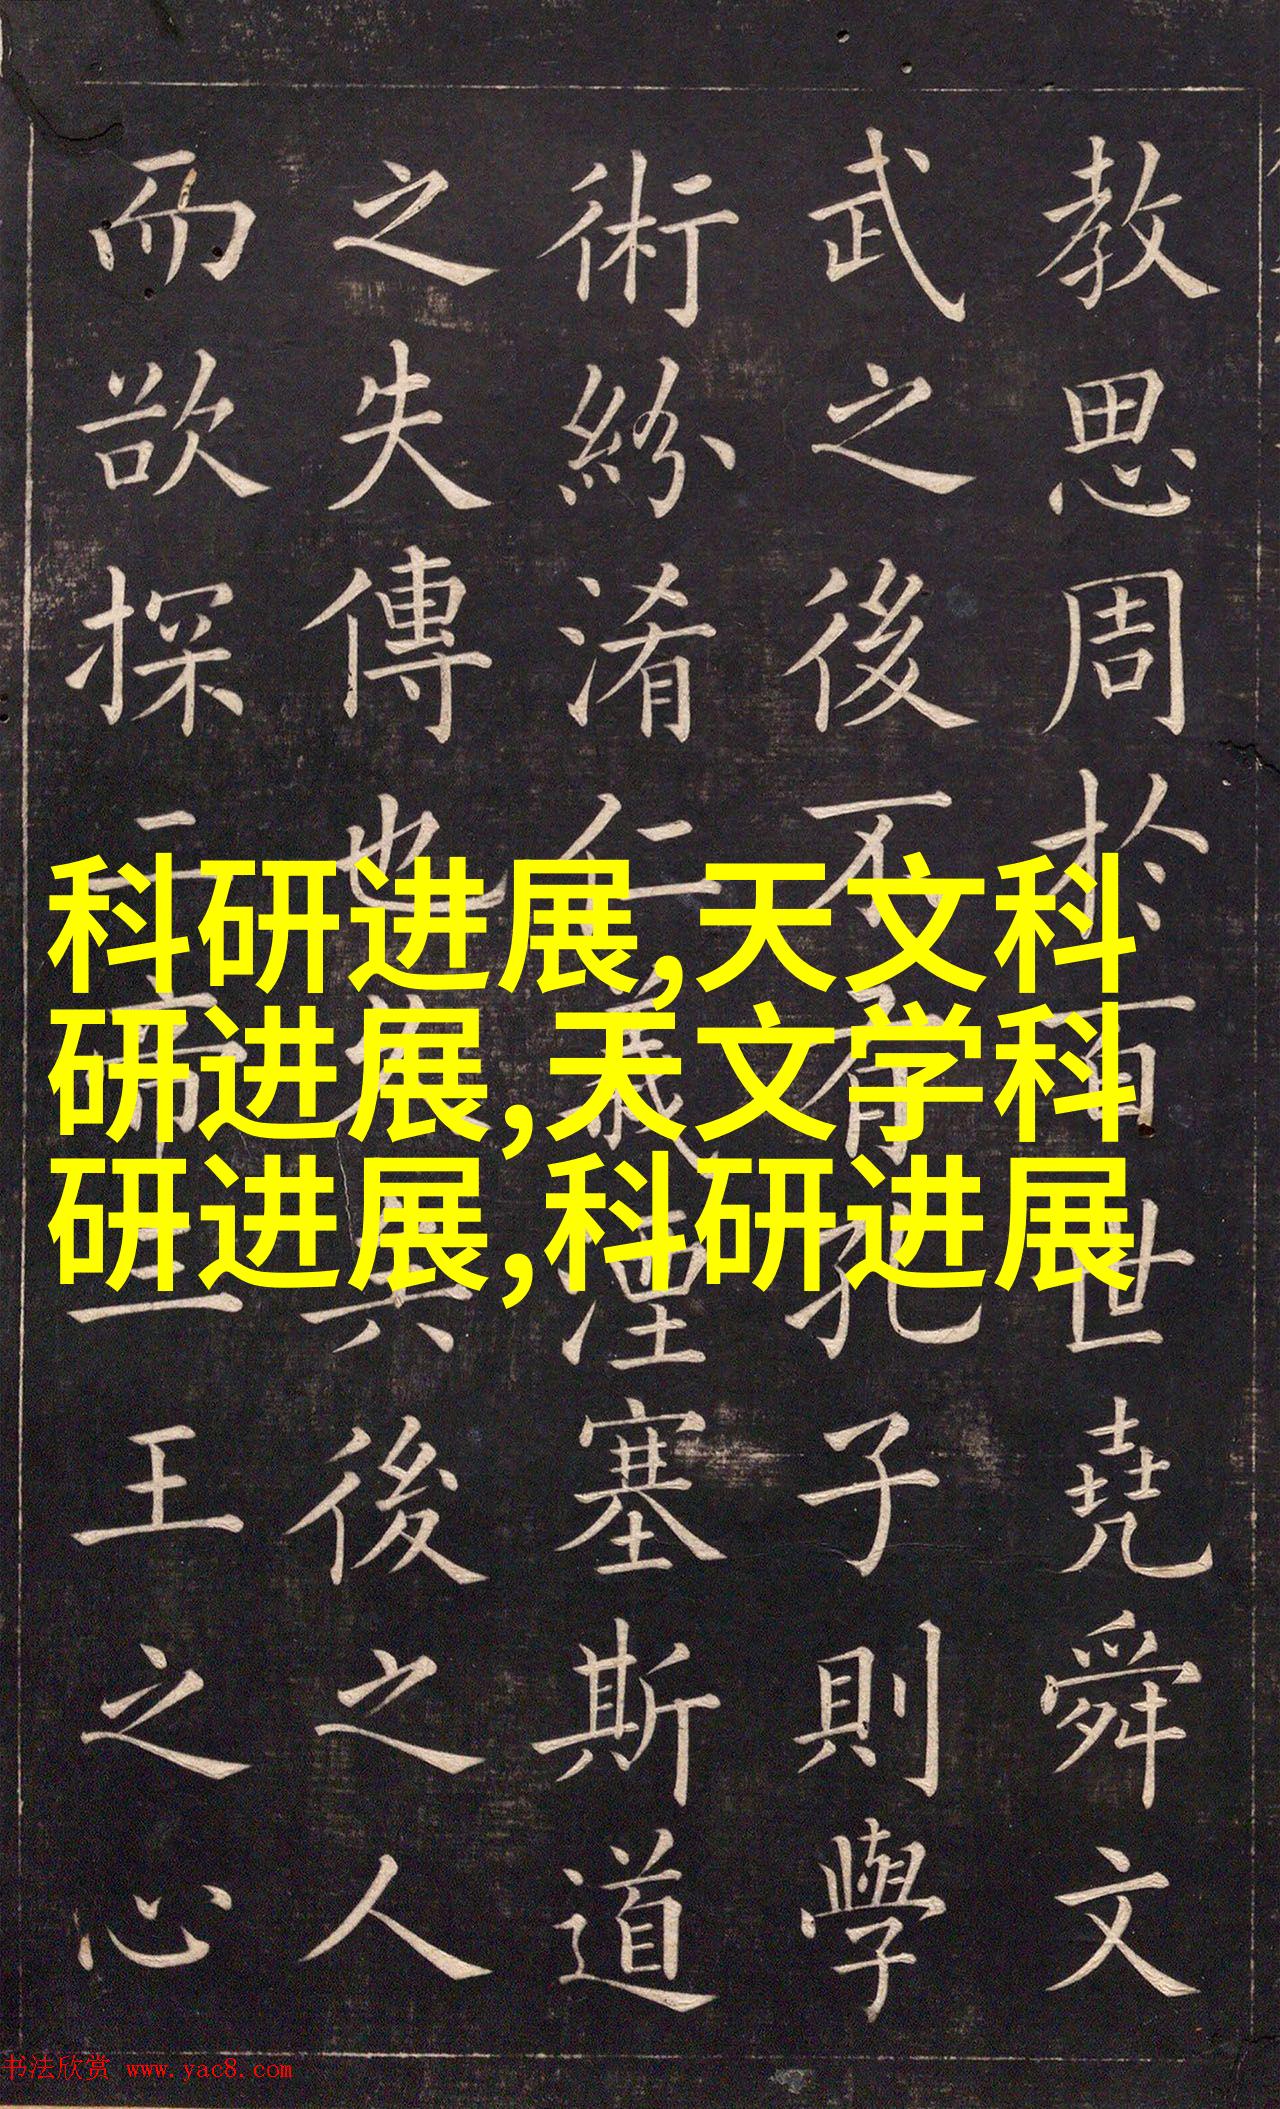 教思周於百世堯舜文
武之後不有孔子則學
術紛淆仁義湮塞斯道
之失傳也久矣後之人
而欲探二帝三王之心
科研进展,天文科
研进展,天文学科
研进展,科研进展
书法欣赏 www.yac8.com